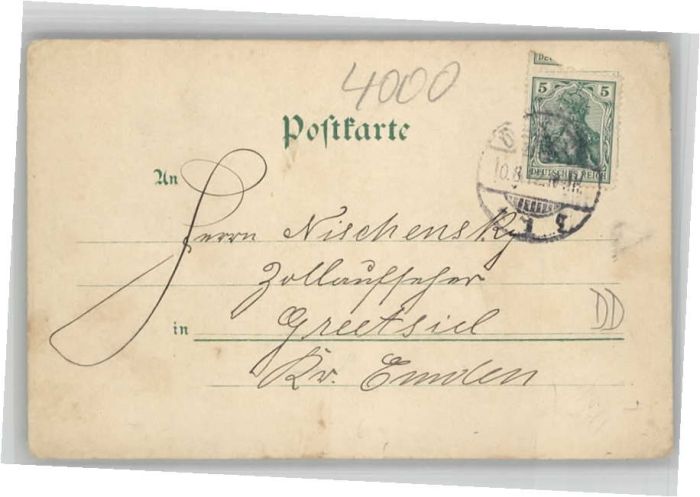 4000
5 5
DEUTSCHES REICH
Postkarte
An
Herrn Nischensky
Zollaufseher
in Greetsiel
Kr. Emden
DD